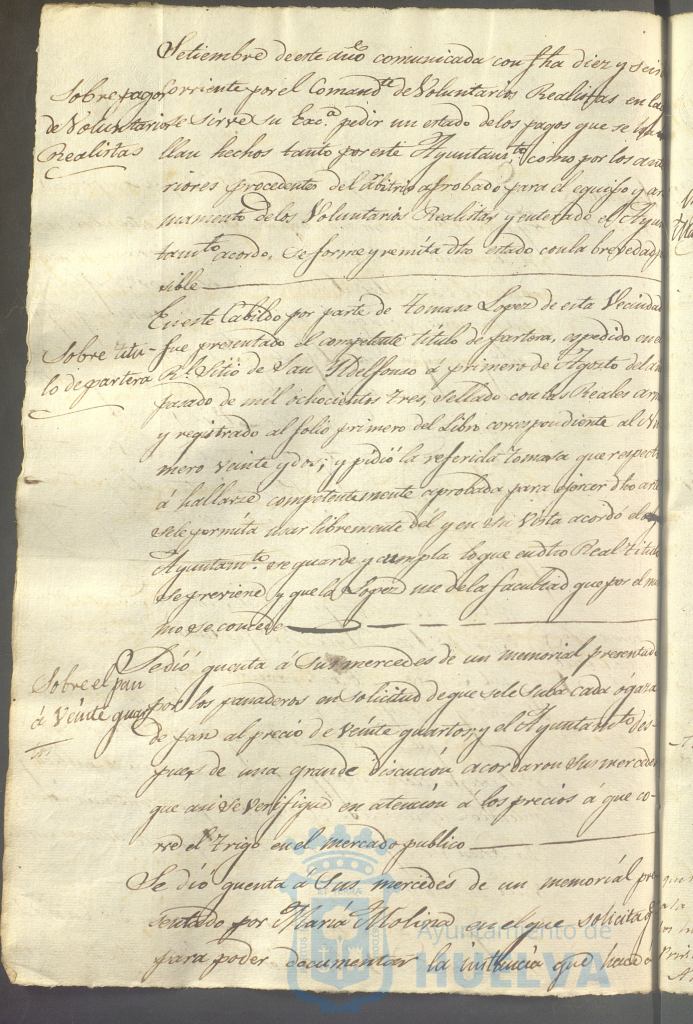 Setiembre de este año comunicada con fha diez y seis
Sobre pagos
de Voluntarios
Realistas
corriente por el Comandte de Voluntarios Realistas en la
se sirve su Exca pedir un estado de los pagos que se
llan hechos tanto por este Ayuntamto como por los ante
riores procedente del arbitrio aprobado para el equipo y ar
mamento de los Voluntarios Realistas y enterado el Ayun
tamto acordo, se forme y remita dho estado con la brevedad
sible
En este Cabildo por parte de Tomasa Lopez de esta Vecindad
Sobre titu-
lo de partera
fue presentado el competente titulo de partera, espedido en el
Rl Sitio de San Ildelfonso á primero de Agosto del
pasado de mil ochocientos tres, sellado con las Reales arm
y registrado al folio primero del Libro correspondiente al Nu
mero veinte y dos; y pidió la referida Tomasa que respecto
á hallarse competentemente aprobada para ejercer dho art
se le permita usar libremente del y en su Vista acordó el
Ayuntamto se guarde y cumpla lo que en dho Real titulo
se previene y que la Lopez use de la facultad que por el mis
mo se concede
Se dió quenta á Sus mercedes de un memorial presentado
Sobre el pan
á Veinte quar
tos
por los panaderos en solicitud de que se le suba cada ogaza
de pan al precio de veinte quartos, y el Ayuntamto des
pues de una grande discución acordaron Sus mercedes
que asi se verifique en atencion á los precios á que co-
rre el trigo en el mercado publico
Se dio quenta á Sus mercedes de un memorial pre
sentado por Maria Molina en el que solicita q
para poder documentar la instancia que hace á
Ayuntamiento de
HUELVA